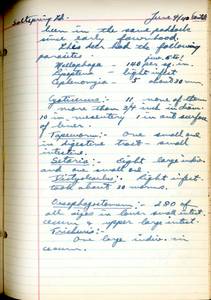 Saltspring Id. June 9/40
been in the same paddock
since early fawnhood.
This deer had the following
parasites
Mallophaga - 140 per sq. in.
Lipeptena - light infest
5 about 30 mm.
Cysticercus: 11, none of them
more than 3/4 ind. in diam
10 in mesentery 1 in ant surface
of liver.
Tapeworm: One small one
in digestive tract - small
intestine.
Setaria: Eight large indiv.
and one small one
Dictyocaulus: light infest.
took about 20 worms.
Oesophagostomum: - 280 of
all sizes in lower small intest.
caecum & upper large intest.
Trichuris:
One large indiv. in
caecum.